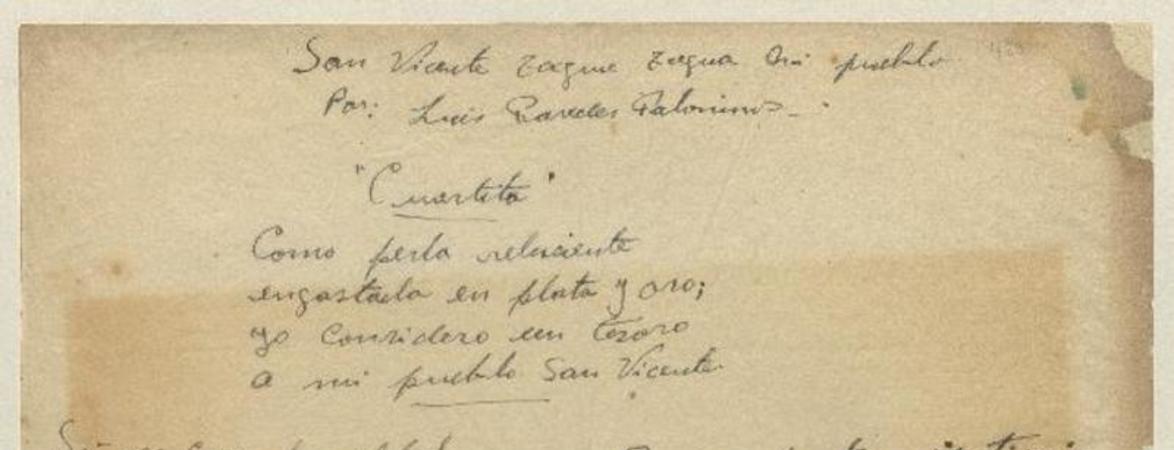 San Vicente zagua zagua mi pueblo
Por: Luis Paredes Palomino -
"Cuartita"
Como perla reluciente
engastada en plata y oro;
yo considero un tesoro
a mi pueblo San Vicente.